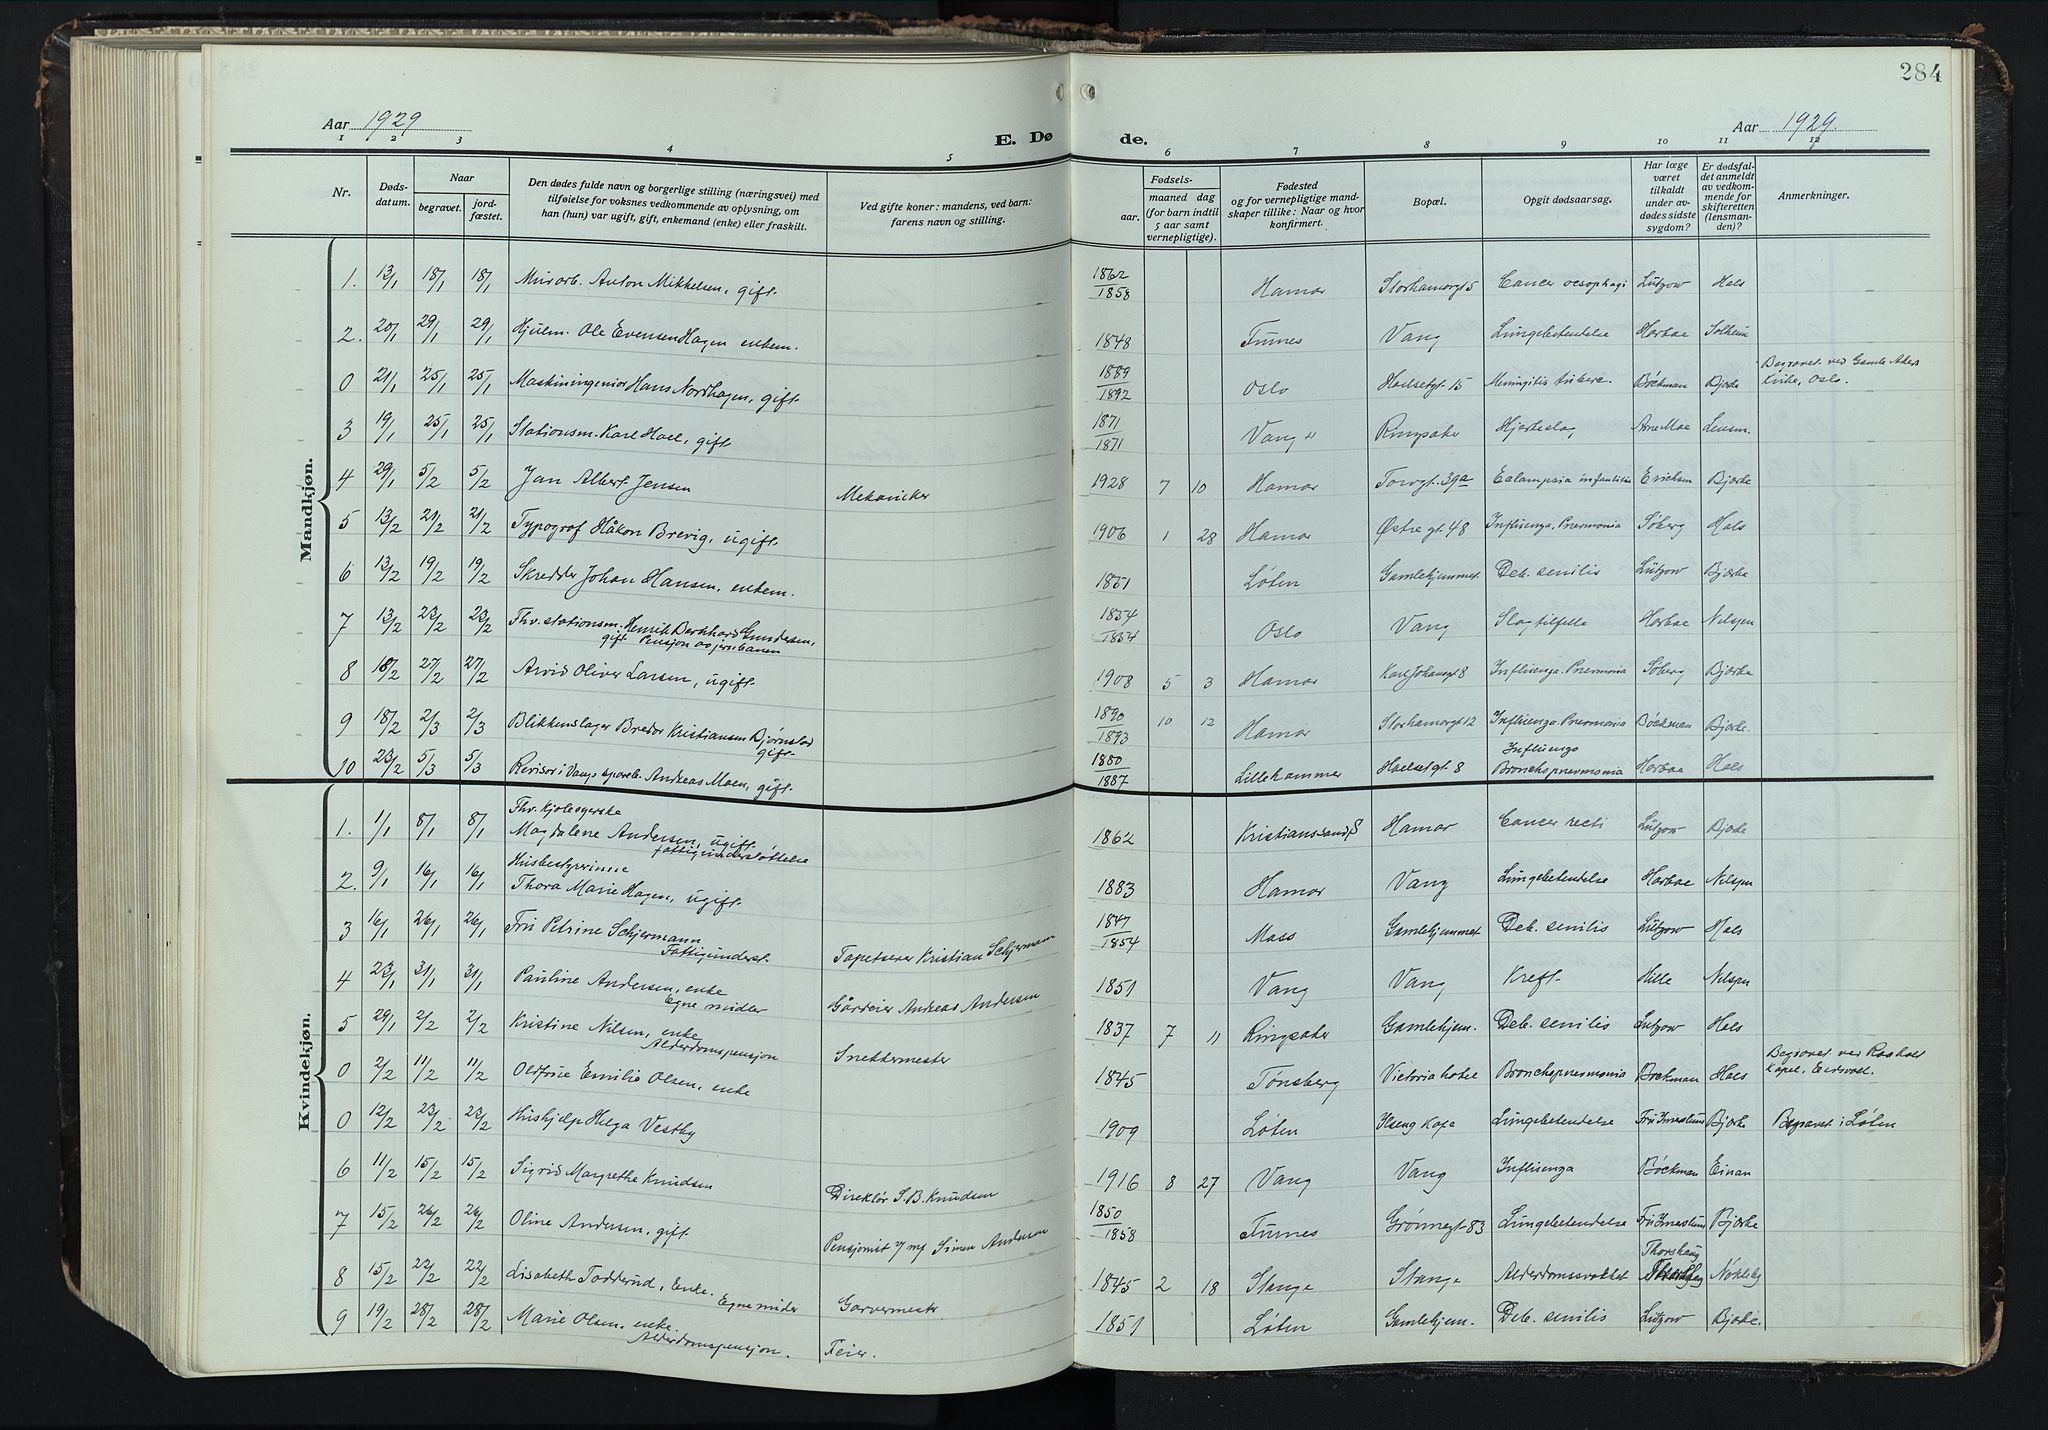 284
Aar 1929
E. Døde.
Aar 1929.
1 2 3 4 5 6 7 8 9 10 11 12
Nr. | Dødsdatum. | Naar begravet. | jordfæstet. | Den dødes fulde navn og borgerlige stilling (næringsvei) med tilføielse for voksnes vedkommende av oplysning, om han (hun) var ugift, gift, enkemand (enke) eller fraskilt. | Ved gifte koner: mandens, ved barn: farens navn og stilling. | Fødsels- aar. | maaned dag (for barn indtil 5 aar samt vernepligtige). | Fødested og for vernepligtige mandskaper tillike: Naar og hvor konfirmert. | Bopæl. | Opgit dødsaarsag. | Har læge været tilkaldt under avdødes sidste sygdom? | Er dødsfaldet anmeldt av vedkommende for skifteretten (lensmanden)? | Anmerkninger.
Mandkjøn.
1. 13/1 18/1 18/1 Murarb. Anton Mikkelsen, gift. 1862/1858 Hamar Storhamargt 5 Cancer oesophagi Lützow Hals
2. 20/1 29/1 29/1 Hjulm. Ole Evensen Hagen enkem. 1848 Furnes Vang Lungebetendelse Harboe Solheim
0 21/1 25/1 25/1 Maskiningeniør Hans Nordhagen, gift. 1889/1892 Oslo Hoelsetgt. 15 Meningitis tuberc. Bøckman Bjerke Begravet ved Gamle Akers Kirke, Oslo.
3 19/1 25/1 25/1 Stationsm. Karl Hoel, gift 1871/1871 Vang Ringsaker Hjerteslag Arne Moe Lensm.
4 29/1 5/2 5/2 Jan Albert Jensen Mekaniker 1928 7 10 Hamar Torvgt. 39a Ealampsia infantilis Erichsen Bjerke
5 13/2 21/2 21/2 Typograf Håkon Brevig, ugift. 1906 1 28 Hamar Østre gt. 48 Influenza. Pnevmonia Søberg Hals
6 13/2 19/2 19/2 Skredder Johan Hansen, enkem. 1851 Løten Gamlehjemmet Deb. senilis Lützow Bjerke
7 13/2 23/2 23/2 Fhv. stationsm. Henrik Bernhard Gundersen, gift Pensjon av jernbanen 1854/1854 Oslo Vang Slagtilfelle Harboe Nilsen
8 18/2 27/2 27/2 Arvid Oliver Larsen, ugift. 1908 5 3 Hamar Karl Johansgt 8 Influenza. Pnevmonia Søberg Bjerke
9 18/2 2/3 2/3 Blikkenslager Bredor Kristiansen Bjørnstad gift. 1890/1893 10 12 Hamar Storhamargt 12 Influenza Pnevmonia Bøckman Bjerke.
10 23/2 5/3 5/3 Revisor i Vangs spareb. Andreas Moen, gift. 1880/1887 Lillehammer Hoelsetgt. 8 Influenza Bronchopnevmonia Harboe Hals
Kvindekjøn.
1. 1/1 8/1 8/1 Fhv. Kjolesyerske Magdalene Andersen, ugift. Fattigunderstøttelse 1862 Kristiansand S Hamar Cancer recti Lützow Bjerke
2. 9/1 16/1 16/1 Husbestyrerinne Thora Marie Hagen, ugift. 1883 Hamar Vang Lungebetendelse Harboe Nilsen
3 16/1 26/1 26/1 Fru Petrine Schjermann Fattigunderst. Tapetserer Kristian Schjermann 1847/1854 Moss Gamlehjemmet Deb. senilis Lützow Hals
4 23/1 31/1 31/1 Pauline Andersen, enke Egne midler Gårdeier Andreas Andersen 1851 Vang Vang Kreft. Hille Nilsen
5 29/1 2/2 2/2 Kristine Nilsen, enke Alderdomspensjon Snekkermester 1837 7 11 Ringsaker Gamlehjem. Deb. senilis Lützow Hals
0 2/2 11/2 11/2 Oldfrue Emilie Olsen, enke 1845 Tønsberg Victoria hotel Bronchopnevmonia Bøckman Hals Begravet ved Raaholt Kapel, Eidsvoll.
0 12/2 23/2 23/2 Hushjelp Helga Vestby 1909 Løten Ilseng Kafe Lungebetendelse Frü Imeslund Bjerke Begravet i Løten
6 11/2 15/2 15/2 Sigrid Margrethe Knudsen Direktør S. B. Knudsen 1916 8 27 Vang Vang Influenza Bøckman Einan
7 15/2 26/2 26/2 Oline Andersen, gift. Pensjonist Simen Andersen 1850/1858 Furnes Grønnegt. 83 Lungebetendelse Frü Imeslund Bjerke
8 15/2 22/2 22/2 Lisabeth Todderud, Enke. Egne midler Garvermester 1845 2 18 Stange Stange Alderdomssvakhet Thorshaug Nökleby
9 19/2 28/2 28/2 Marie Olsen, enke. Alderdomspensjon. Feier. 1851 Løten Gamlehjem. Deb. senilis Lützow Bjerke.